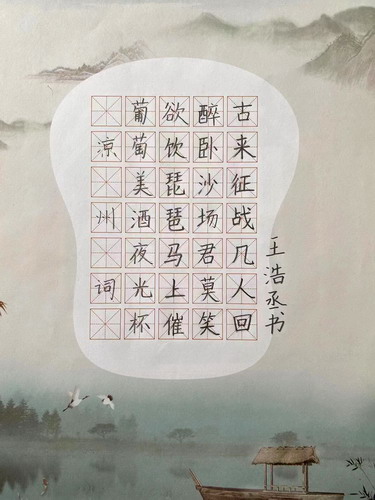 凉州词
葡萄美酒夜光杯
欲饮琵琶马上催
醉卧沙场君莫笑
古来征战几人回
王浩丞书